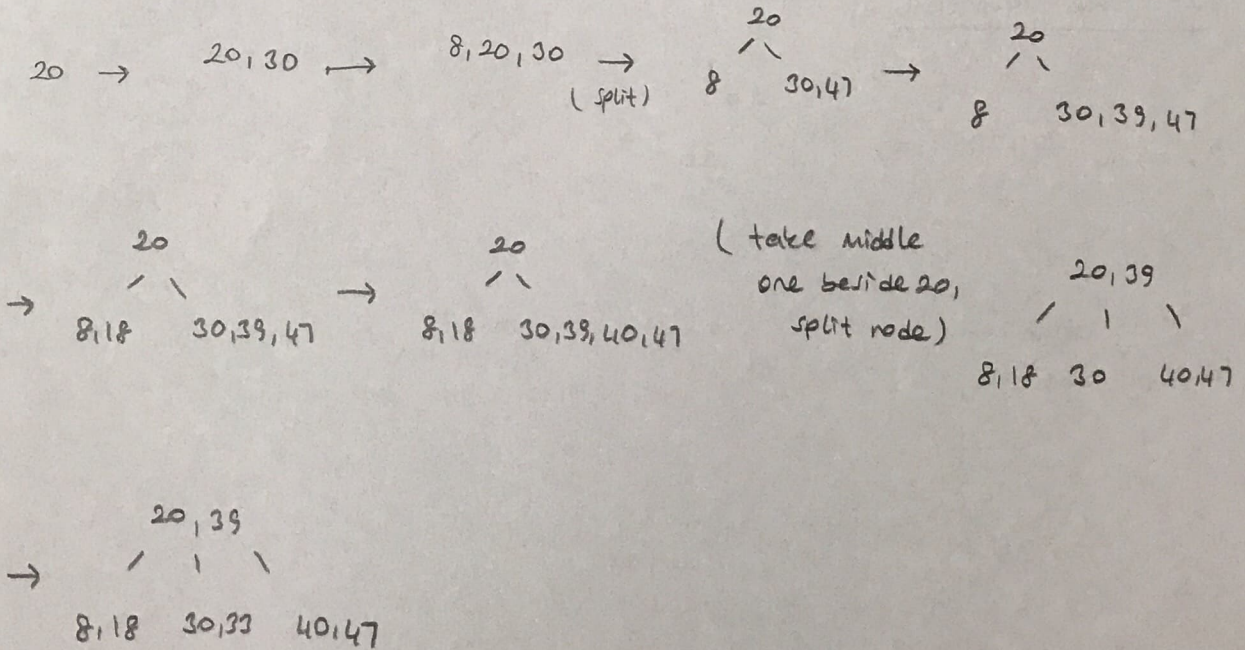 20 → 20,30 → 8,20,30 → (split)
20
8 30,47
→
20
8 30,39,47
→
20
8,18 30,39,47
→
20
8,18 30,39,40,47
( take middle
one beside 20,
split node)
20,39
8,18 30 40,47
→
20,39
8,18 30,33 40,47